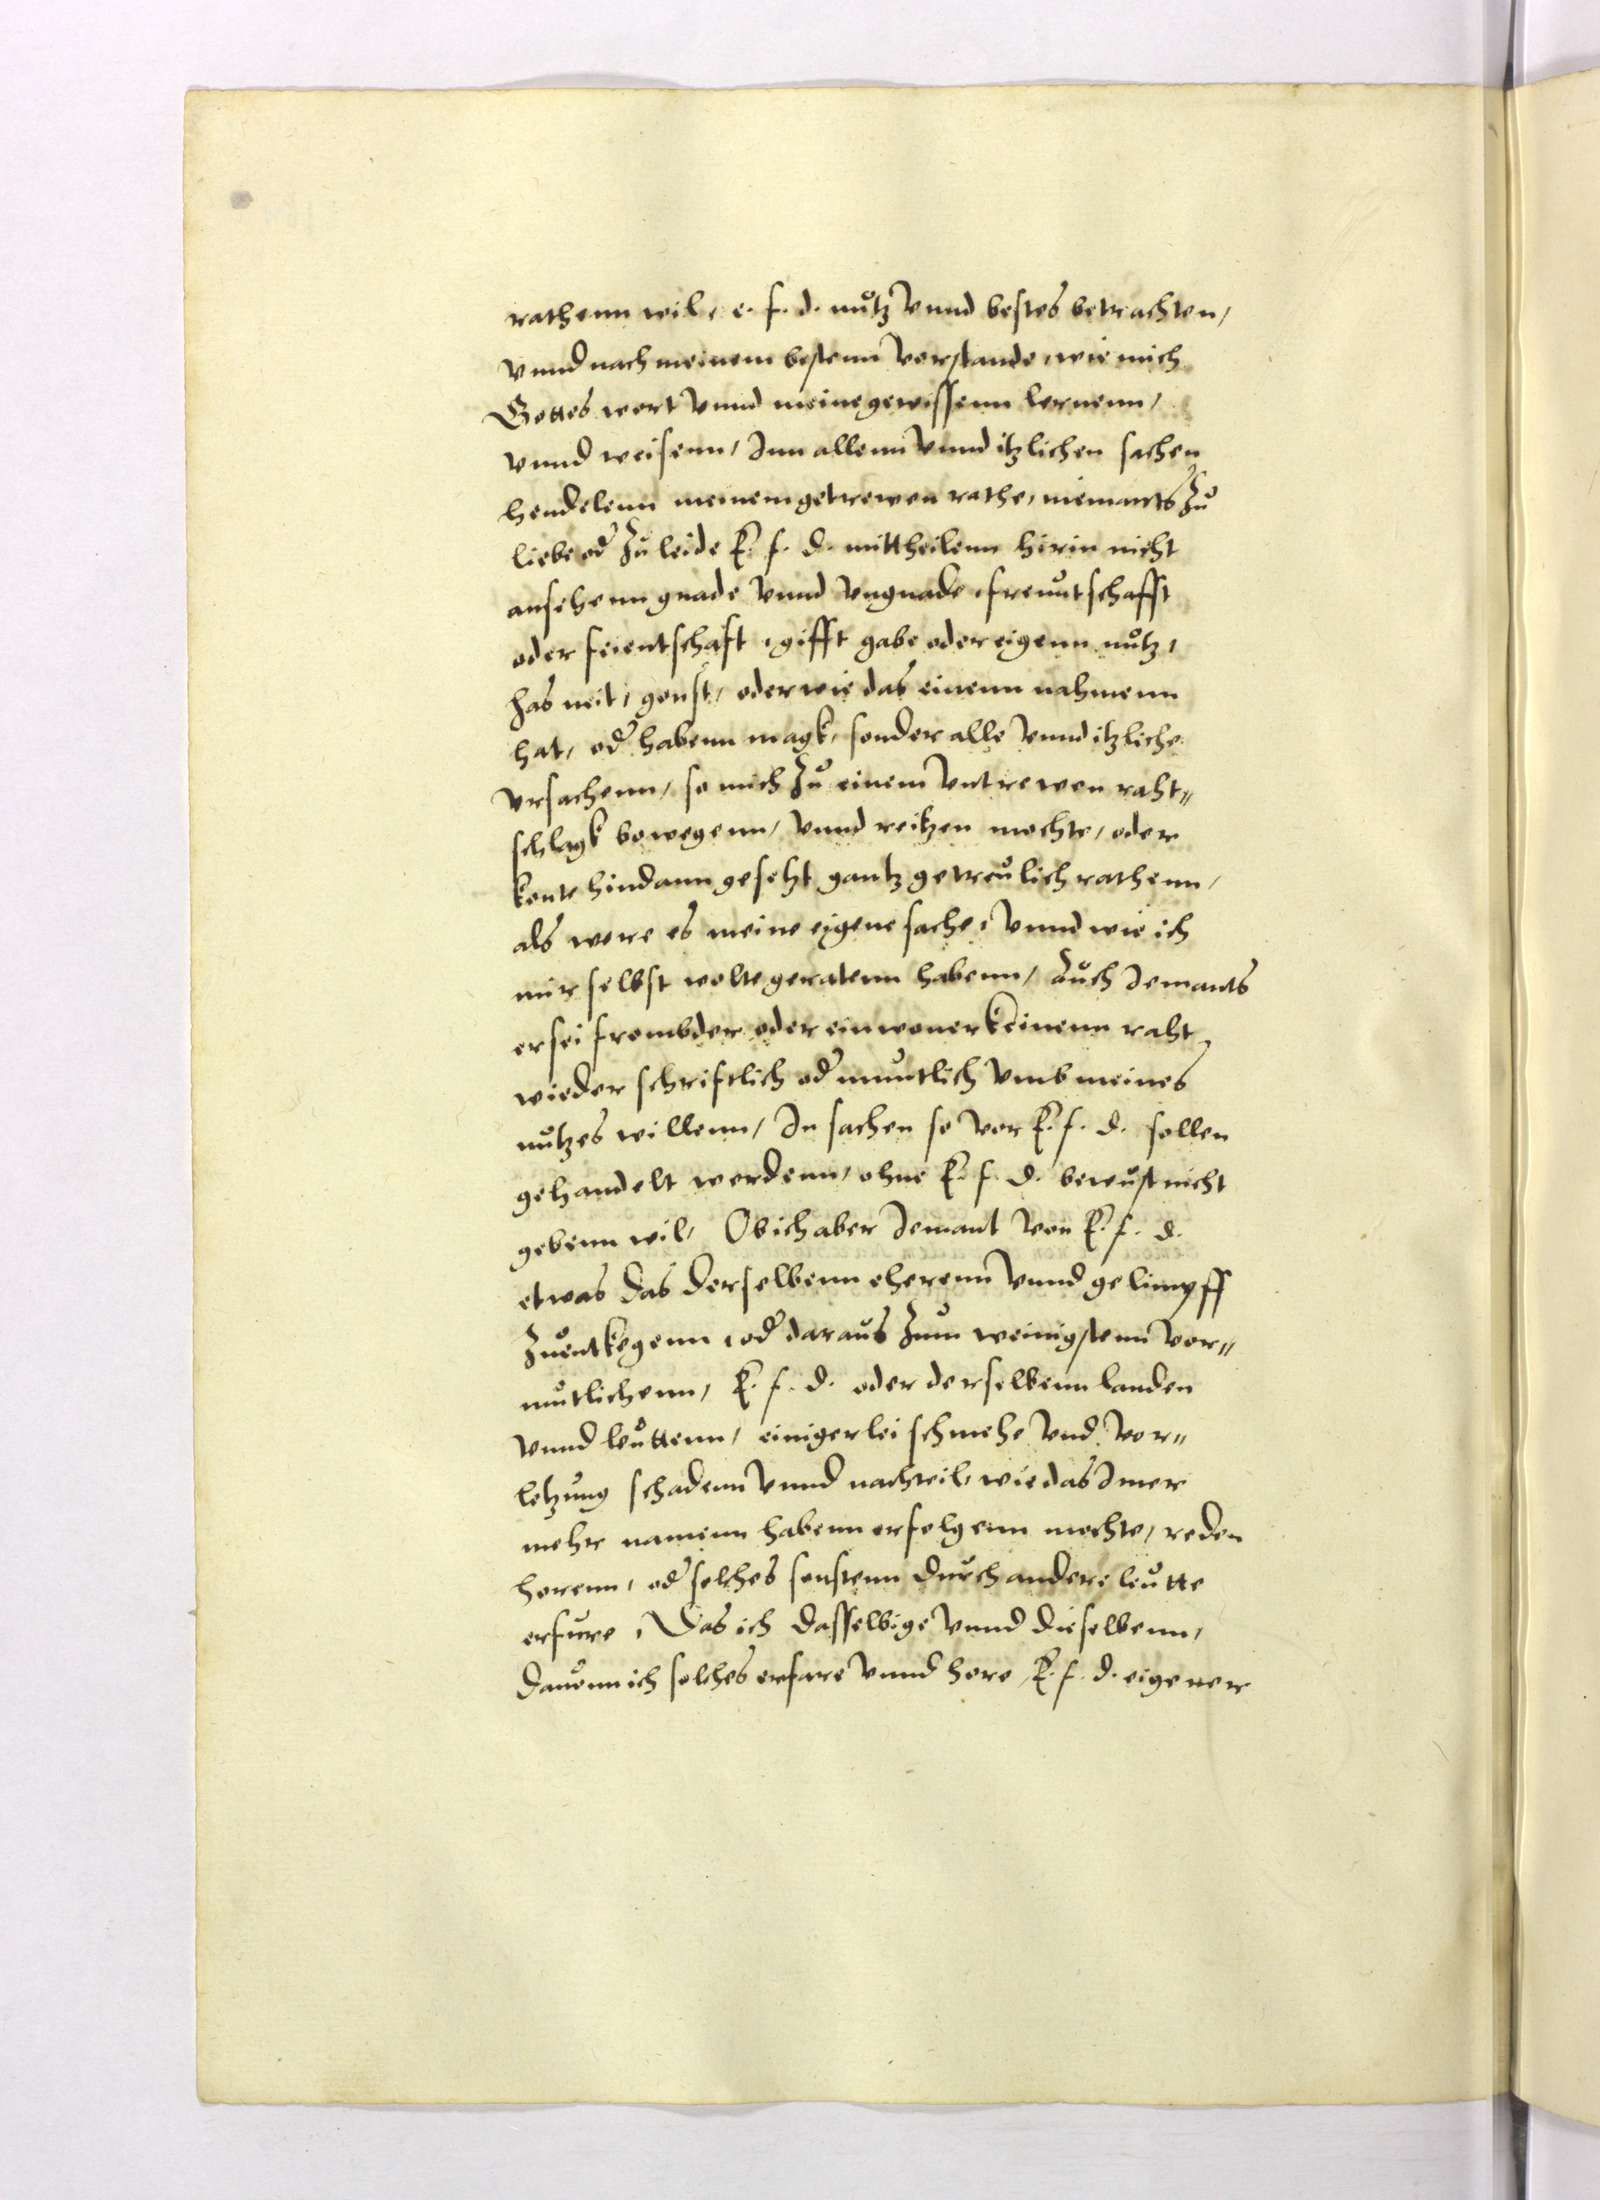 rathenn wil, e. f. d. nutz vnnd bestes betrachten,
vnnd nach meinem bestenn verstande, wie mich
Gottes wort vnnd meine gewissenn lernenn,
vnnd weisenn, Inn allenn vnnd itzlichen sachen
hendelenn meinem getrewen rathe, niemants zu
liebe od zu leide E. f. d. mittheilenn hirin nicht
ansehenn gnade vnnd vngnade, freuntschafft
oder feientschaft, gifft gabe oder eigenn nutz,
has neit, gonst, oder wie das einenn nahmenn
hat, od habenn magk, sonder alle vnnd itzliche
vrsachenn, so mich zu einem vntrewen raht=
schlagk bewegenn, vnnd reitzen mochte, oder
konte hindann gesetzt gantz getreulich rathenn,
als were es meine eigene sache, vnnd wie ich
mir selbst wolte geratenn habenn, Auch Jemants
er sei frembder oder einwoner keinenn raht
wieder schriftlich od muntlich vmb meines
nutzes willenn, In sachen so vor E. f. d. sollen
gehandelt werdenn, ohne E. f. d. bewust nicht
gebenn wil, Ob ich aber Jemant von E. f. d.
etwas das derselbenn eherenn vnnd gelimpff
zuentkegenn, od daraus zum weinigstenn vor=
mutlichenn, E. f. d. oder derselbenn landen
vnnd leuttenn, einigerlei schmehe vnd vor=
letzung schadenn vnnd nachteil, wie das Imer
mehr namenn habenn erfolgenn mochte, reden
horenn, od solches sonstenn durch andere leutte
erfure, Das ich dasselbige vnnd dieselbenn,
dauonn ich solches erfare vnnd hore, E. f. d. eigener